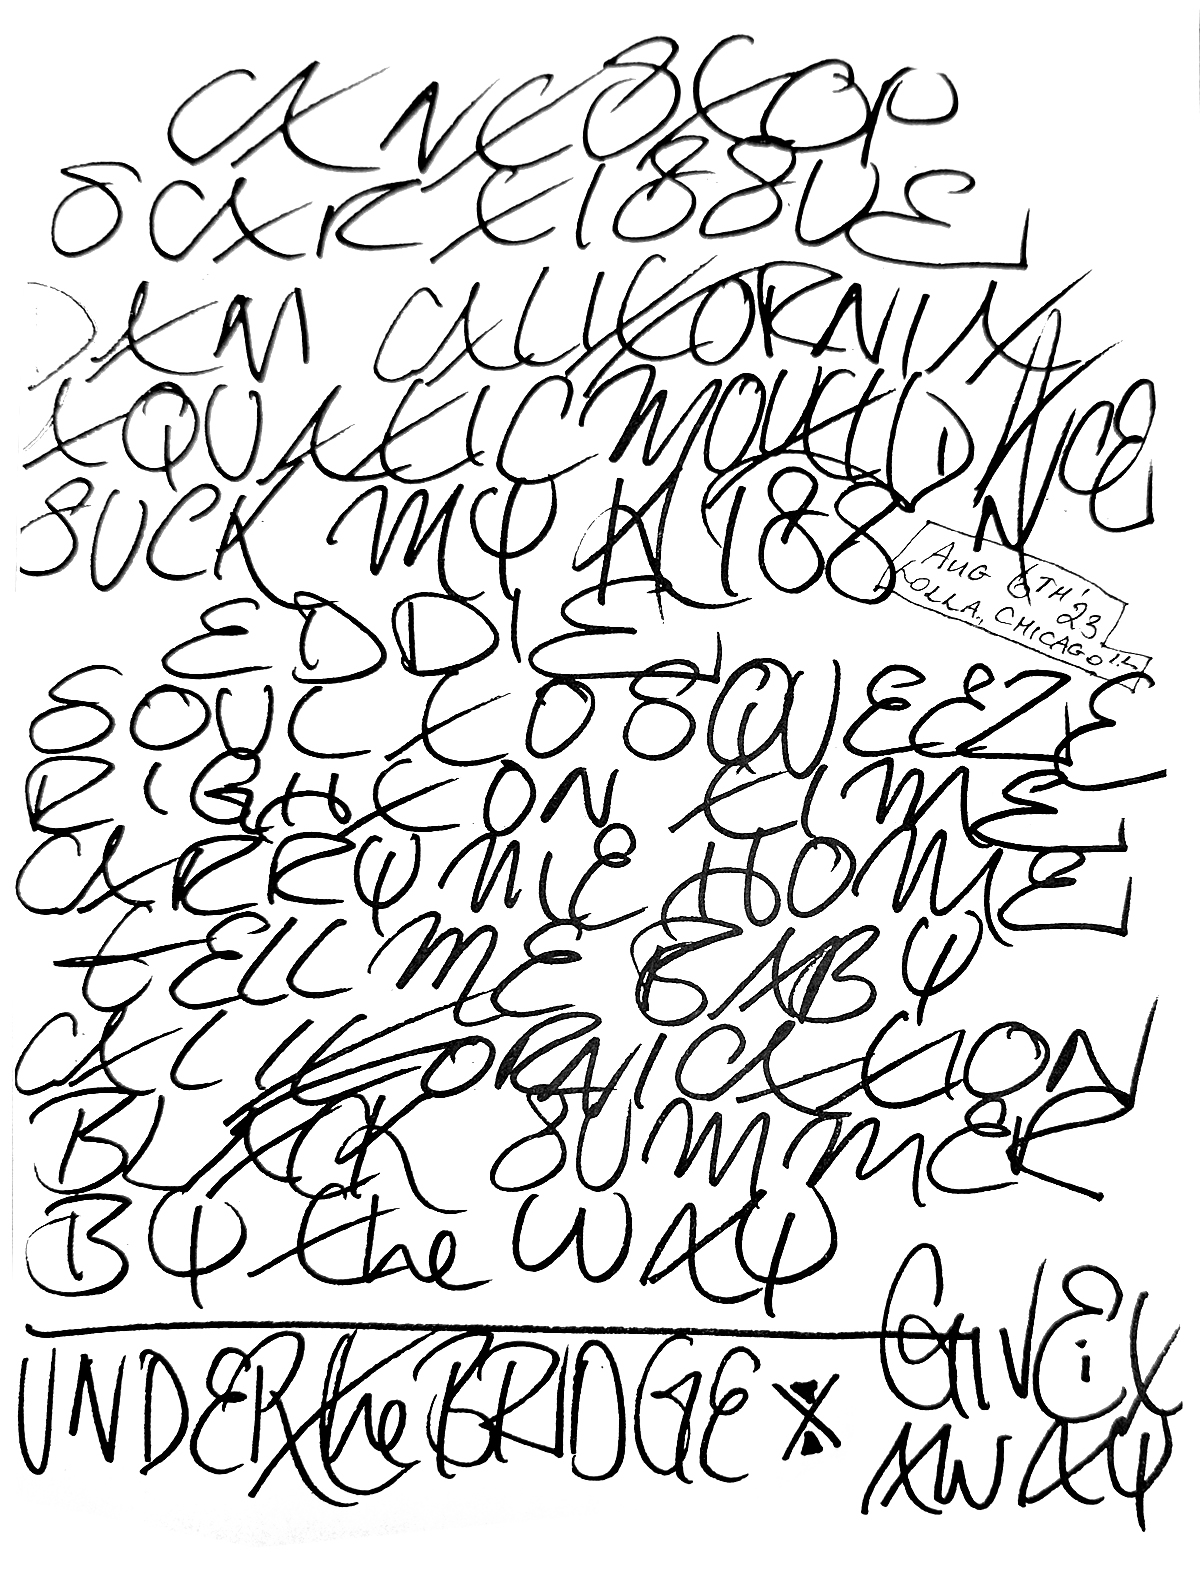 CAN'T STOP
SCAR TISSUE
DANI CALIFORNIA
AQUATIC MOUTH DANCE
SUCK MY KISS
AUG 6TH '23
LOLLA., CHICAGO IL
EDDIE
SOUL TO SQUEEZE
RIGHT ON TIME
CARRY ME HOME
TELL ME BABY
CALIFORNICATION
BLACK SUMMER
BY the WAY
UNDER the BRIDGE
GIVE it
AWAY